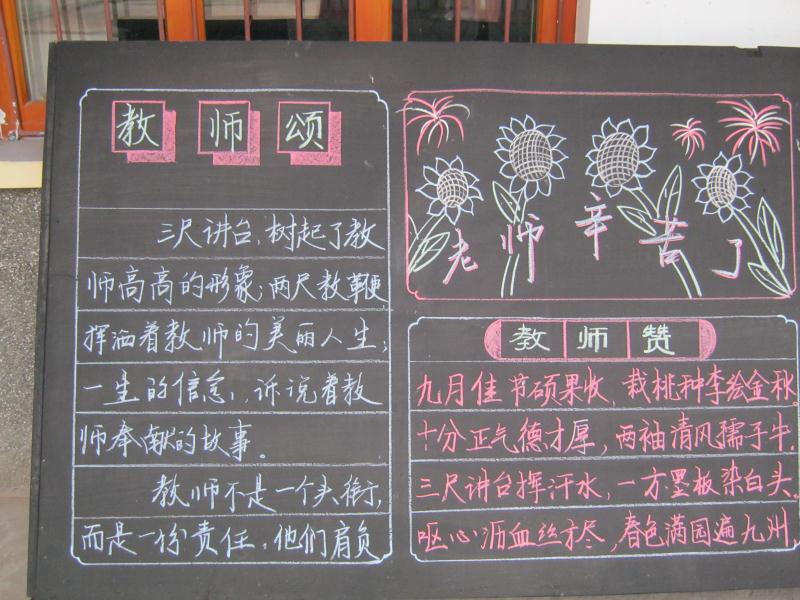 教师颂
三尺讲台，树起了教
师高高的形象；两尺教鞭
挥洒着教师的美丽人生；
一生的信念，诉说着教
师奉献的故事。
教师不是一个头衔，
而是一份责任，他们肩负
老师辛苦了
教师赞
九月佳节硕果收，栽桃种李绘金秋。
十分正气德才厚，两袖清风孺子牛。
三尺讲台挥汗水，一方墨板染白头。
呕心沥血丝才尽，春色满园遍九州。